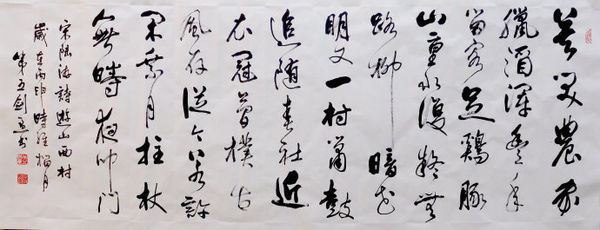 莫笑農家
臘酒渾豐年
留客足雞豚
山重水復疑無
路柳暗花
明又一村簫鼓
追隨春社近
衣冠簡樸古
風存從今若許
閑乘月拄杖
無時夜叩門
宋陸游詩遊山西村
歲在丙申時維榴月
第五劍書